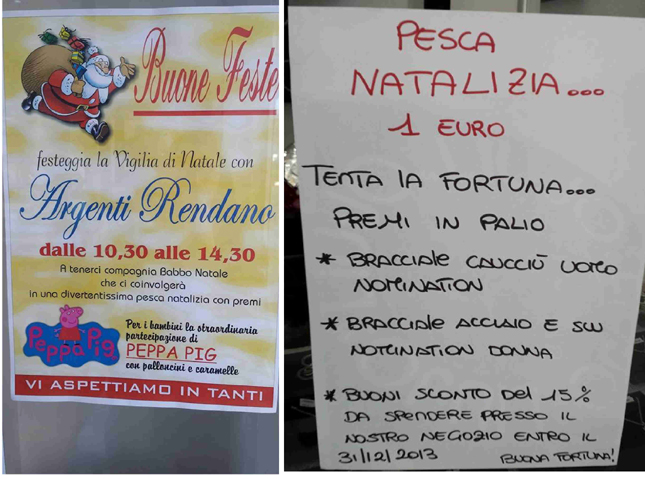 Buone Feste
festeggia la Vigilia di Natale con
Argenti Rendano
dalle 10,30 alle 14,30
A tenerci compagnia Babbo Natale
che ci coinvolgerà
in una divertentissima pesca natalizia con premi
Peppa Pig
Per i bambini la straordinaria
partecipazione di
PEPPA PIG
con palloncini e caramelle
VI ASPETTIAMO IN TANTI
PESCA
NATALIZIA...
1 EURO
TENTA LA FORTUNA...
PREMI IN PALIO
* BRACCIALE CAUCCIÙ UOMO
NOMINATION
* BRACCIALE ACCIAIO E SW
NOMINATION DONNA
* BUONI SCONTO DEL 15%
DA SPENDERE PRESSO IL
NOSTRO NEGOZIO ENTRO IL
31/12/2013 BUONA FORTUNA!